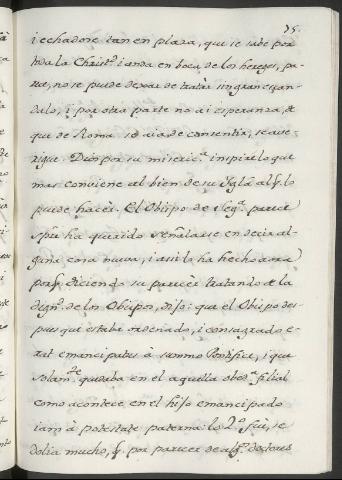 75.
i echadose tan en plaza, que se sabe por
toda la Christ.ᵈ i anda en boca de los hereges, pa-
rece, no se puede dexar de tratar sin gran escan-
dalo, i por otra parte no ai esperanza, de
que de Roma se aia de consentir, se ave-
rigue. Dios por su miseric.ᵃ inspire lo que
mas conviene al bien de su Igl.ᵃ al q. lo
puede hacer. El Obispo de Seg.ᵃ parece
spre ha querido señalarse en decir al-
guna cosa nueva, i assi lo ha hecho aora
porq. diciendo su parecer tratando de la
dign.ᵈ de los Obispos, dijo: que el Obispo des-
pues que estaba ordenado, i consagrado e-
rat emancipatus à summo Pontifice, i que
solam.ᵗᵉ quedaba en el aquella obed.ᵃ filial
como acontece en el hijo emancipado
iam à potestate paterna: lo 2.º fue, se
dolia mucho, q. por parecer de alg.ˢ doctores